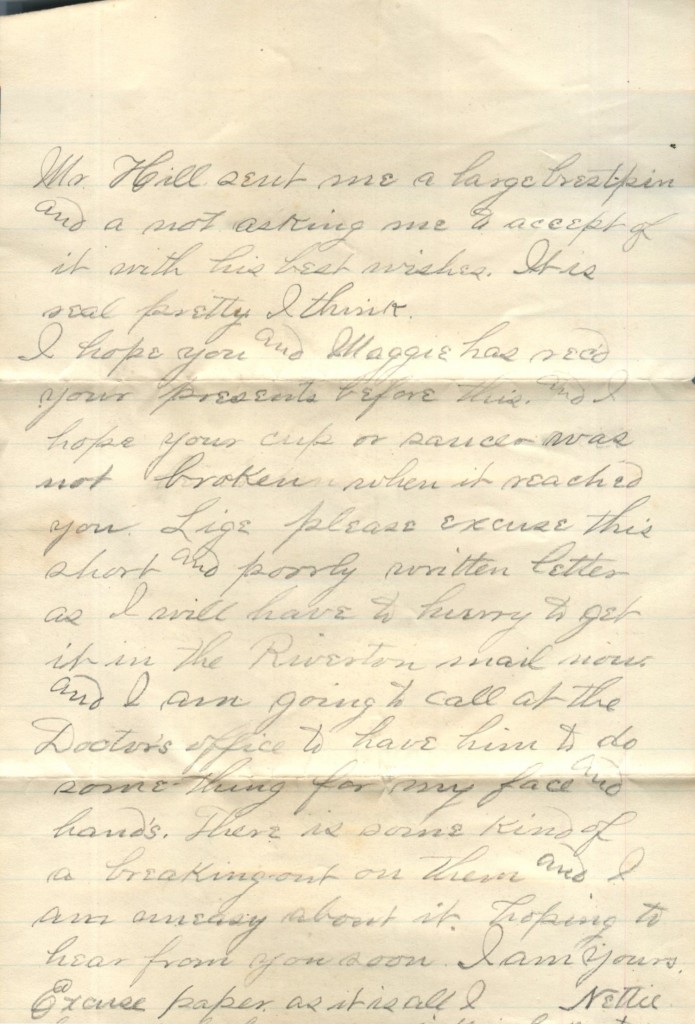 Mr. Hill sent me a large brest-pin
and a not asking me to accept of
it with his best wishes. It is
real pretty I think.
I hope you and Maggie has rec'd
your presents before this. and I
hope your cup or saucer was
not broken when it reached
you. Lige please excuse this
short and poorly written letter
as I will have to hurry to get
it in the Riverton mail now.
and I am going to call at the
Doctor's office to have him to do
some-thing for my face and
hand's. There is some kind of
a breaking-out on them and I
am uneasy about it. hoping to
hear from you soon. I am Yours.
Excuse paper as it is all I Nettie